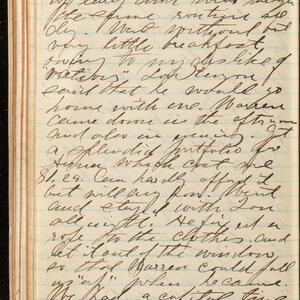 the same routine all
day. Went without but
very little breakfast,
owing to my dislike of
said that he would go
home with me. Warren
came down in the afternoon
and also in evening. Got
a splendid portfolio for
which cost me
$1.25. Can hardly afford it
but will any how. Went
and stayed with Lon
all night. He pinned a
rope to the clothes and
let it out of the window
so that Warren could pull
"up" when he came.
We had a